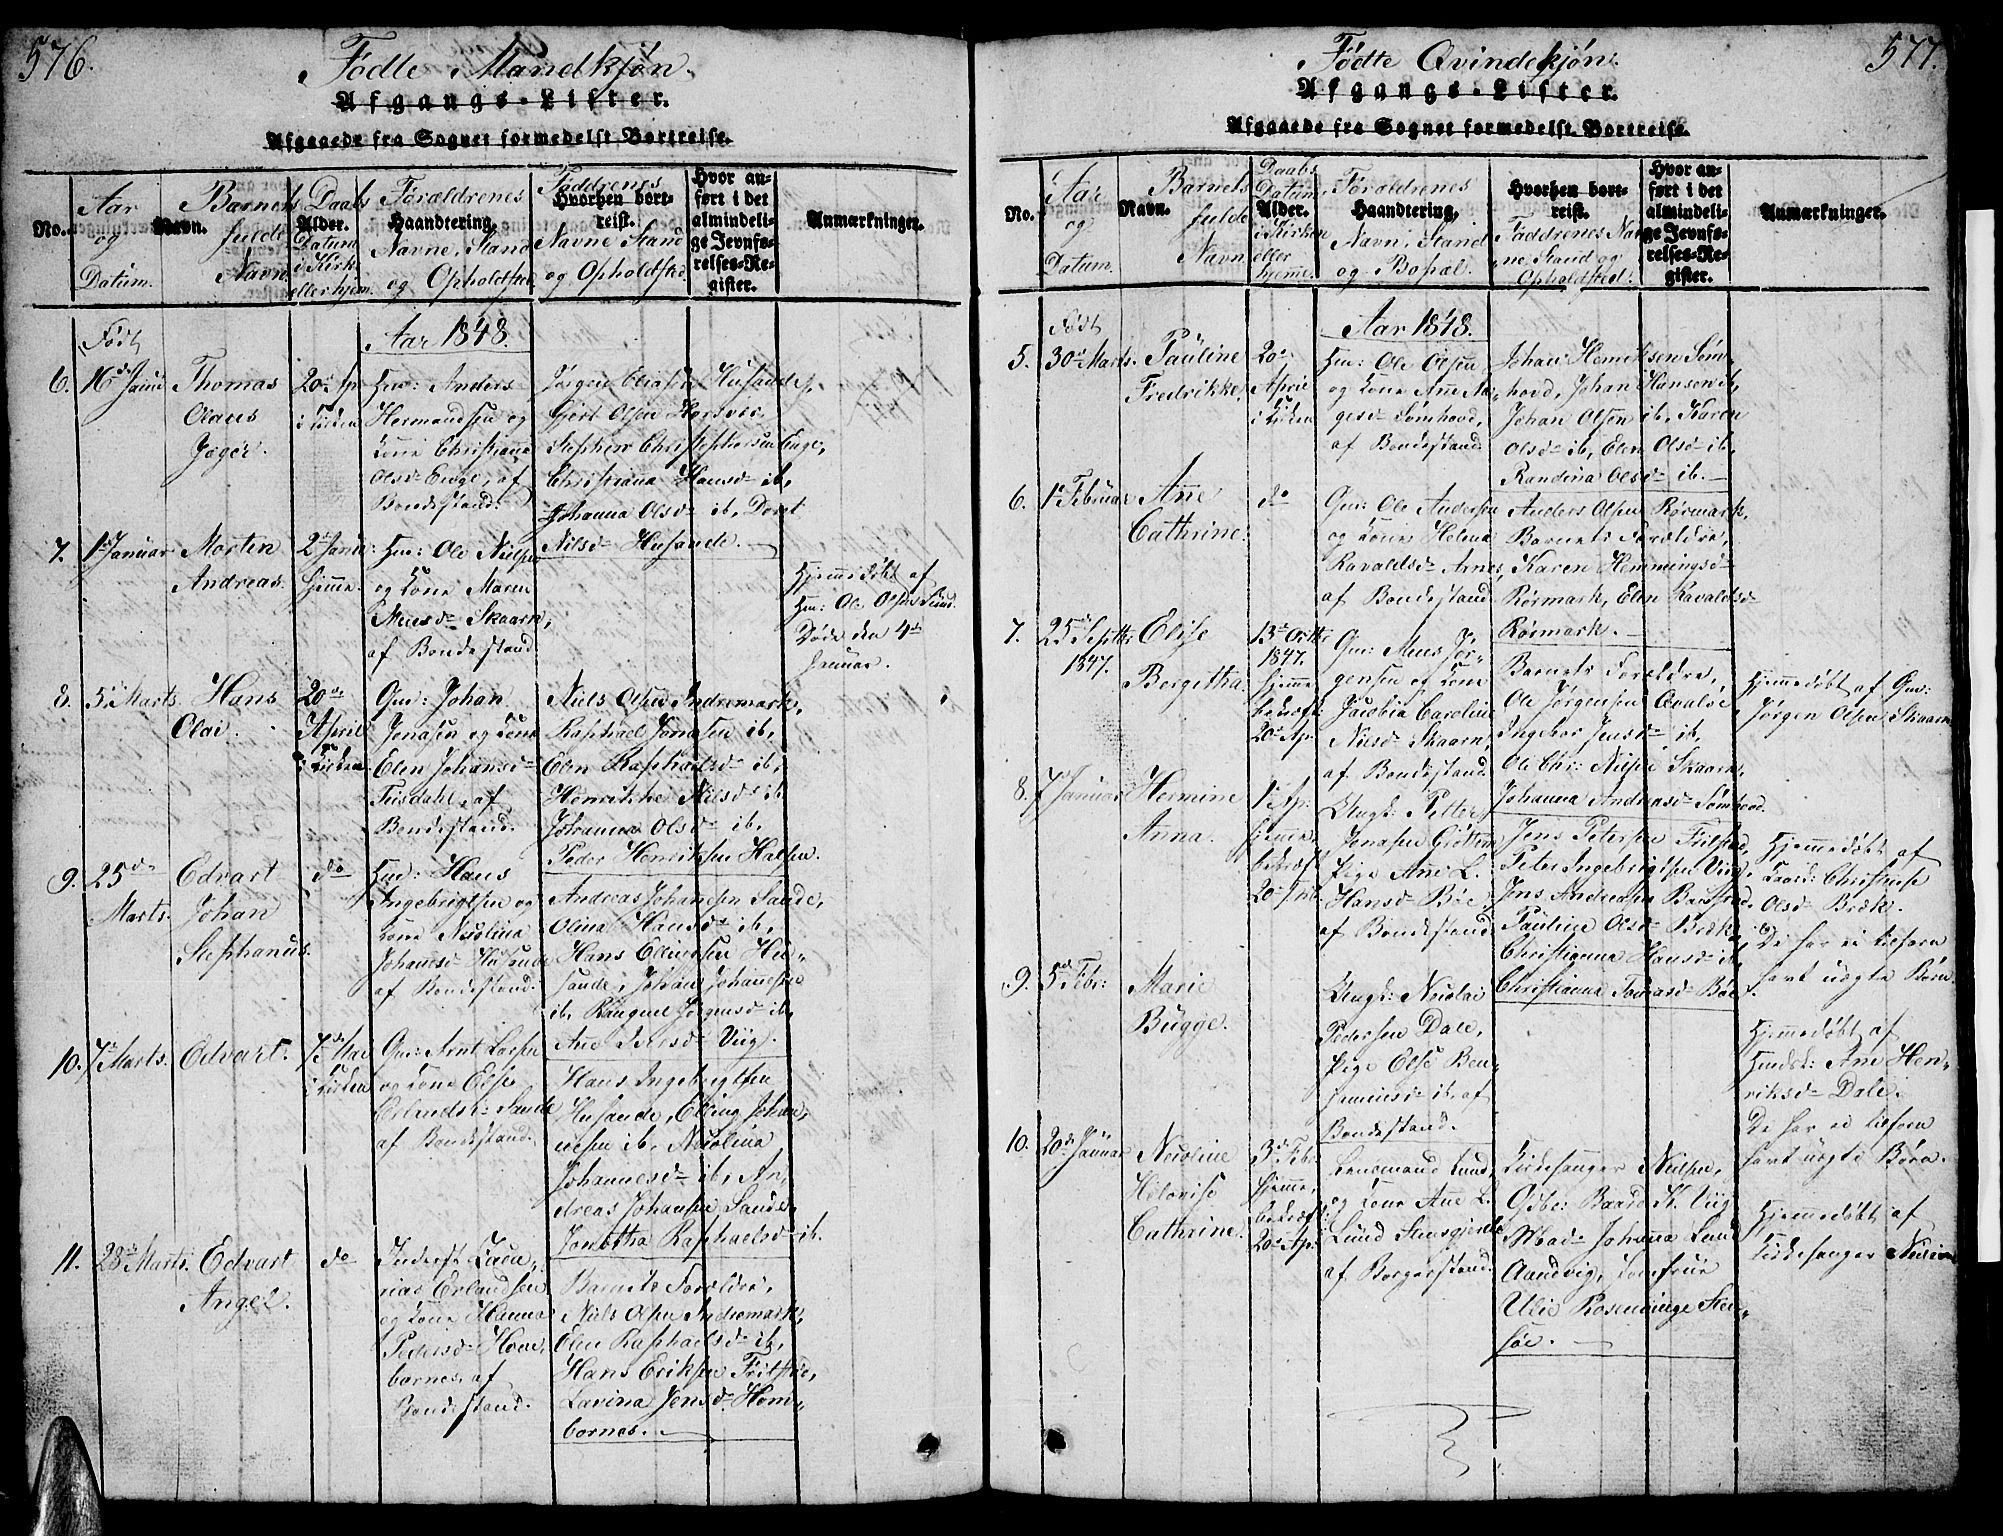 576.
Fødte Mandkjøn.
Afgangs-Lister.
Afgaaede fra Sognet formedelst Bortreise.
No.
Aar
og
Datum.
Barnets
Navn.
fulde
Navn
Daabs
Alder.
Datum
i Kirk.
eller hjem.
Forældrenes
Haandtering.
Navne, Stand
og Opholdsted
Faddrenes
Hvorhen bort-
reist.
Navne Stand
og Opholdsted
Hvor an-
ført i det
almindeli-
ge Jevnfø-
relses-Re-
gister.
Anmærkninger.
Aar 1848.
Født
6.
16de Janu
Thomas
Olaus
Jæger.
20de Ap.
i Kirken
Huu: Anders
Hermandsen og
Kone Christianna
Olsd. Enge, af
Bondestand.
Jørgen Eliasen Husaade,
Gjert Olsen Horsvær,
Stephen Christophersen Enge,
Christiana Hansd. ib,
Johanna Olsd. ib, Doret
Nilsd. Husaade.
7.
1de Januar
Morten
Andreas.
2de Janu:
hjemme.
Huu: Ole Nielsen
og Kone Maren
Meusd. Skaarn,
af Bondestand
Hjemmedøbt af
Huu: Ole Olsen Sund.
Døde den 4de
Januar.
8.
5de Marts.
Hans
Olai.
20de
April
i Kirken
Gm: Johan
Jonasen og Kone
Elen Johansd.
Teisdahl, af
Bondestand.
Niels Olsen Indremark,
Raphael Jonasen ib,
Elen Raphaelsd. ib,
Henrikke Nilsd. ib
Johanna Olsd. ib,
Peder Henriksen Halsen.
9.
25de
Marts.
Edvart
Johan
Stephanus.
do
Huu: Hans
Ingebrigtsen og
Kone Nicolina
Johannesd. Husaade
af Bondestand.
Andreas Johansen Sande,
Olina Hansd. ib,
Hans Ellingsen Hu-
saade, Johan Johannesen
ib, Ranguel Jørgensd. ib,
Ane Iversd. Viig.
10.
7de Marts.
Edvart.
7de Mai
i Kirken
Gm: Arnt Larsen
og Kone Else
Erlandsd: Sande
af Bondestand.
Hans Ingebrigtsen
Husaade, Elling Johan-
nesen ib, Nicolina
Johannesd. ib, An-
dreas Johansen Sande,
Jonetha Raphaelsd. ib.
11.
28de Marts.
Edvart
Angel.
do
Inderst Zacha-
rias Erlandsen
og Kone Hanna
Pedersd. Hom-
bornes, af
Bondestand.
Barnets Forældre,
Niels Olsen Indremark,
Elen Raphaelsd. ib,
Hans Eriksen Frilstad,
Lavina Jensd. Hom-
bornes.
577.
Fødte Qvindekjøn.
Afgangs-Lister.
Afgaaede fra Sognet formedelst Bortreise.
No.
Aar
og
Datum.
Barnets
Navn.
fulde
Navn
Daabs
Datum
Alder.
i Kirken
eller
hjemme.
Forældrenes
Haandtering,
Navn, Stand
og Bopæl.
Hvorhen bort-
reist.
Faddrenes Nav-
ne, Stand og
Opholdsted.
Hvor an-
ført i det
almindeli-
ge Jevnfø-
relses-Re-
gister.
Anmærkninger.
Født
Aar 1848.
5.
30de Marts.
Pauline
Fredrikke.
20de
April
i Kirken
Huu: Ole Olsen
og Kone Ane Aa-
gesd. Sømhovd,
af Bondestand
Johan Henriksen Søm-
hovd, Johan Hansen ib,
Johan Olsen ib, Karen
Olsd. ib, Elen Olsd. ib,
Randina Olsd. ib.
6.
1de Februar
Ane
Cathrine.
do
Gm: Ole Andersen
og Kone Helena
Ravaldsd. Arnes,
af Bondestand
Anders Olsen Rørmark,
Barnets Forældre,
Karen Hemmingsd.
Rørmark, Elen Ravaldsd.
Rørmark.
7.
25de Septbr
1847.
Elise
Bergitha.
13de Octbr
1847.
hjemme
bekræft:
20de Ap.
Gm: Meus Jør-
gensen og Kone
Jacobia Caroline
Nilsd. Skaarn,
af Bondestand
Barnets Forældre,
Ole Jørgensen Qvaløe
Ingebor Jensd. ib,
Ole Chr: Nilsen Skaarn,
Johanna Andreasd. Sømhovd.
Hjemmedøbt af Gm:
Jørgen Olsen Skaarn
8.
7de Januar
Hermine
Anna.
1de Ap.
hjemme.
bekræft
Ungk: Petter
Jonasen Grøttem
Pige Ane L.
Hansd. Bøe,
af Bondestand
Jens Petersen Frilstad,
Peter Ingebrigtsen Viig,
Jens Andreasen Barstad
Pauline Olsd. Bræk
Christianna Hansd. ib
Christianna Tomasd. Bøe.
Hjemmedøbt af
Christense
Olsd. Bræk.
De har ei tilforn
havt uægte Børn.
9.
5te Febr:
Marie
Bugge.
Ungk: Nicolai
Pedersen Dale,
Pige Else Ben-
jaminsd. ib, af
Bondestand.
Hjemmedøbt af
Ane Hen-
riksd. Dale.
De har ei tilforn
havt uægte Børn.
10.
20de Januar
Nicoline
Helovise
Cathrine.
3de Febr.
hjemme,
bekræft:
20de Ap.
Lensmand Lund,
og Kone Ane L.
Lund
af Borgerstand.
Kirkesanger Nielsen,
Gdbr: Baard K. Viig
Mad. Johanna Lund
Aandvig, Jomfrue
Ulie Rosenvinge Sten-
søe.
Hjemmedøbt af
Kirkesanger Nielsen